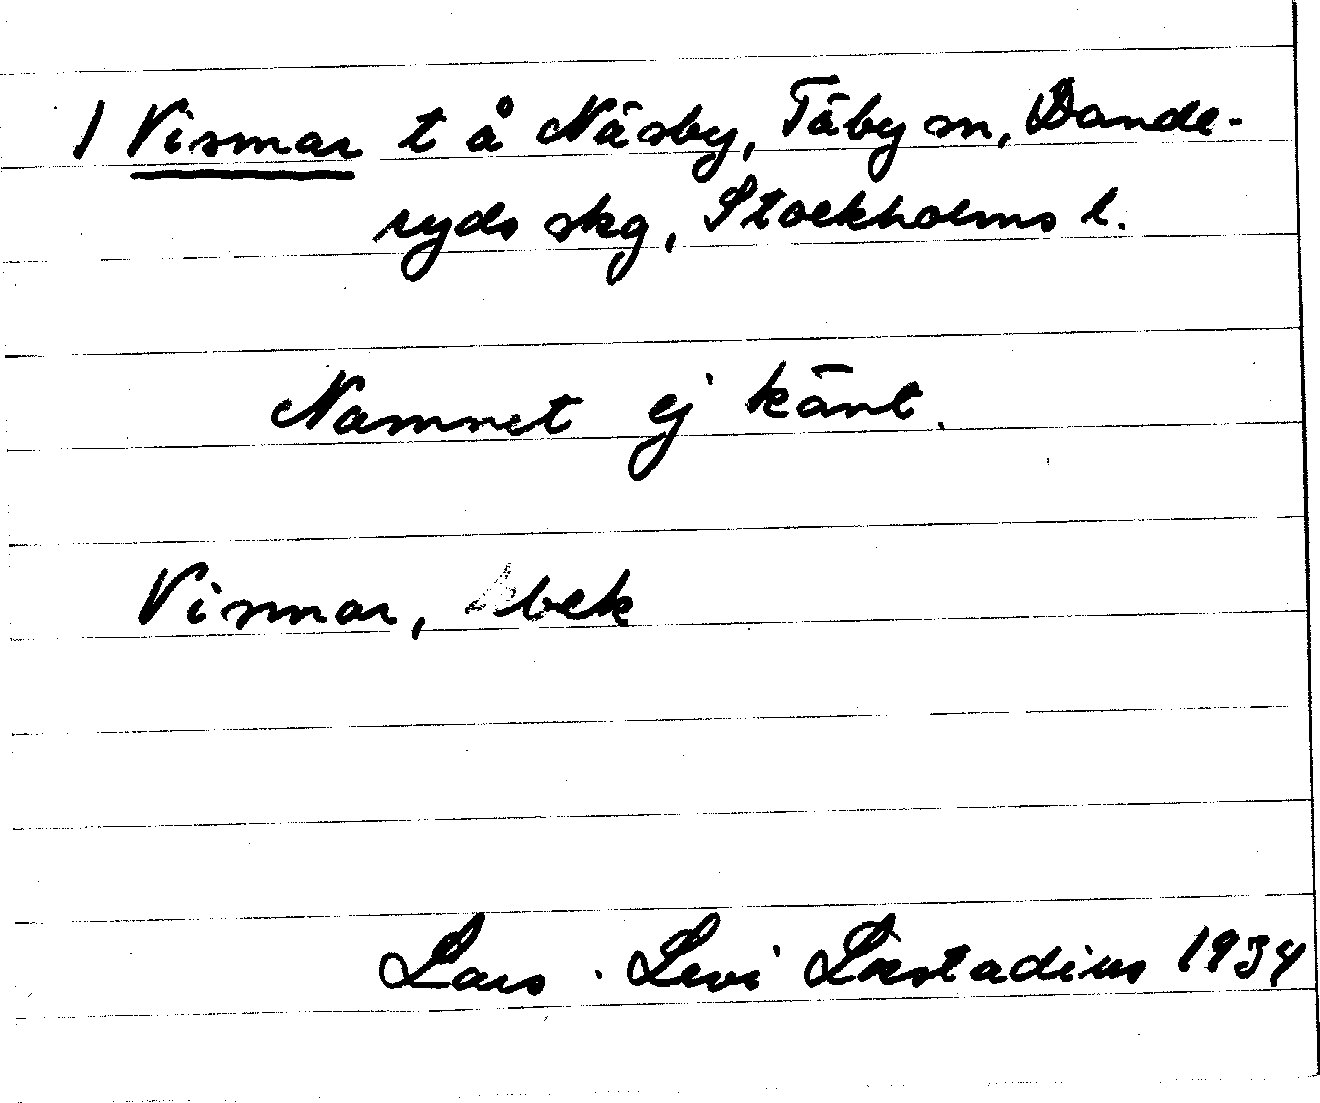 1 Vismar t å Näsby, Täby sn, Dande-
ryds skg, Stockholms l.
Namnet ej känt.
Vismar, bek
Lars-Levi Læstadius 1934